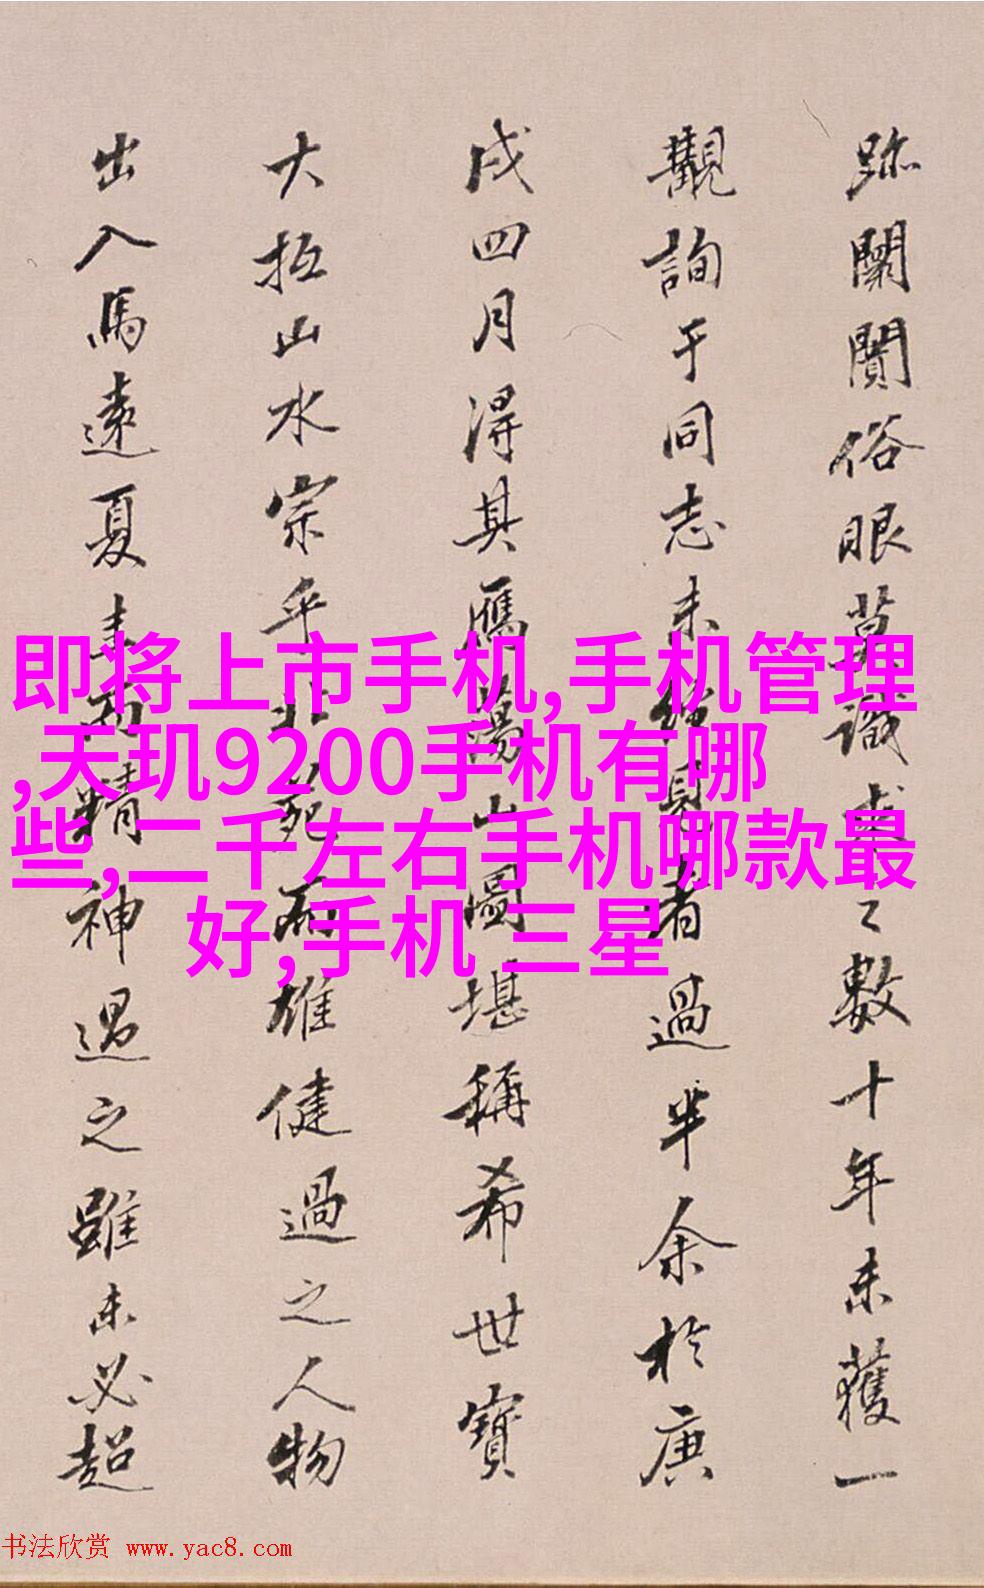 跡闤闠俗眼莫識求之數十年未獲一
觀詢于同志未經見者過半余於庚
戌四月得其鴈蕩山圖堪稱希世寶
大抵山水宗乎北苑而雄健過之人物
出入馬遠夏圭而精神過之雖未必超
即将上市手机,手机管理
,天玑9200手机有哪
些,二千左右手机哪款最
好,手机 三星
书法欣赏 www.yac8.com